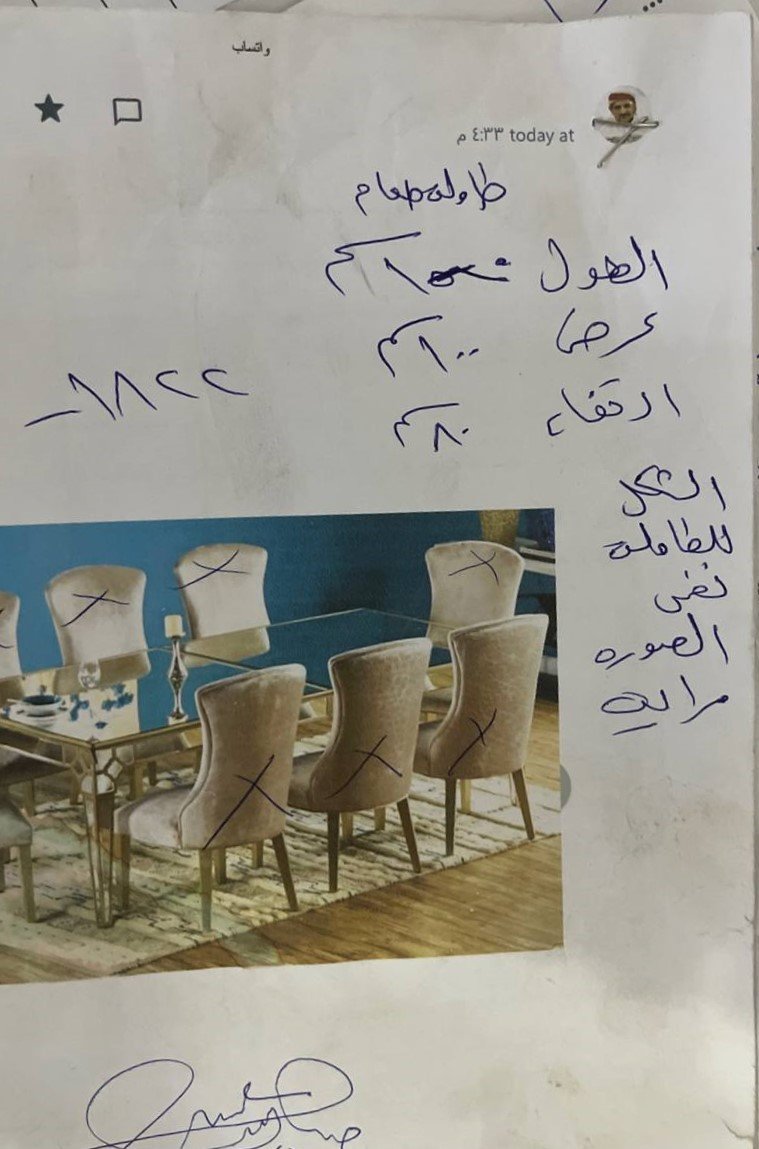 واتساب
today at ٤:٣٣ م
طاولة طعام
الطول
عرض ١٠٠ سم
ارتفاع ٨٠ سم
١٨٢٢
الشكل
للطاولة
نفس
الصوره
مرايه